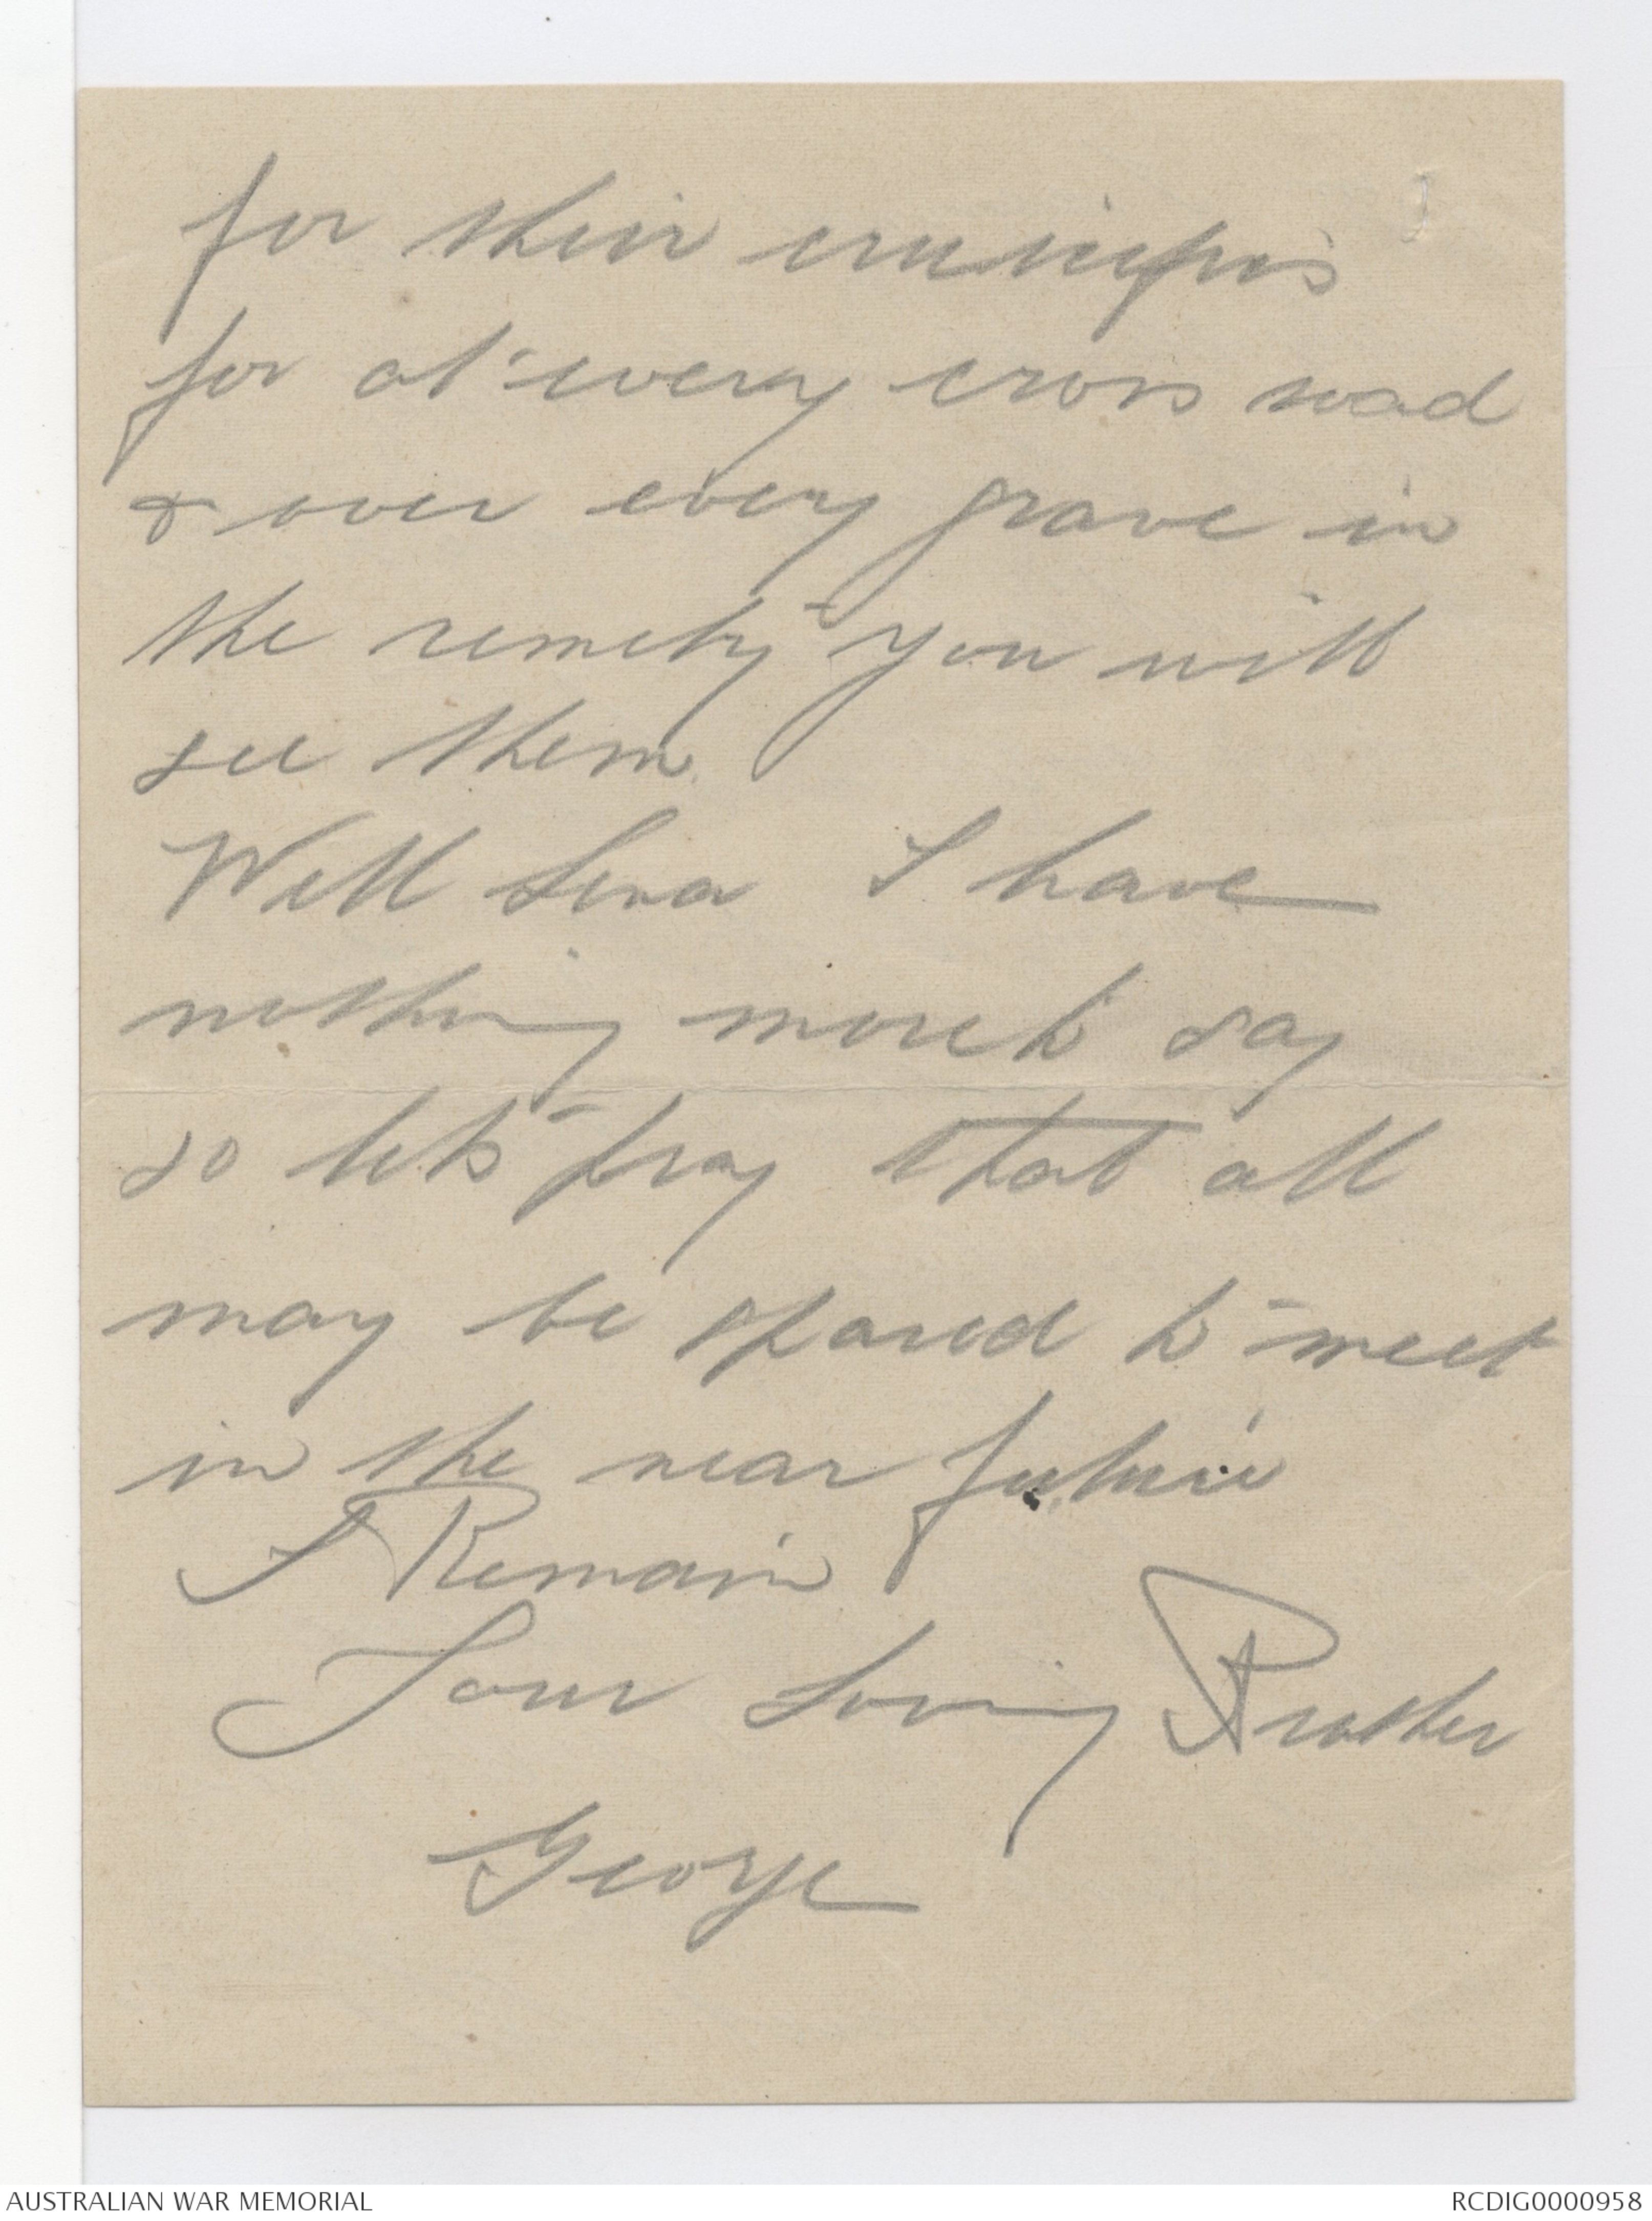 for their crusifixs
for at every cross road
& over every grave in
the cemety you will
see them
Well Lena I have
nothing more to say
so lets pray that all
may be spared to meet
in the near future
I Remain
Your Loving Brother
George
AUSTRALIAN WAR MEMORIAL
RCDIG0000958